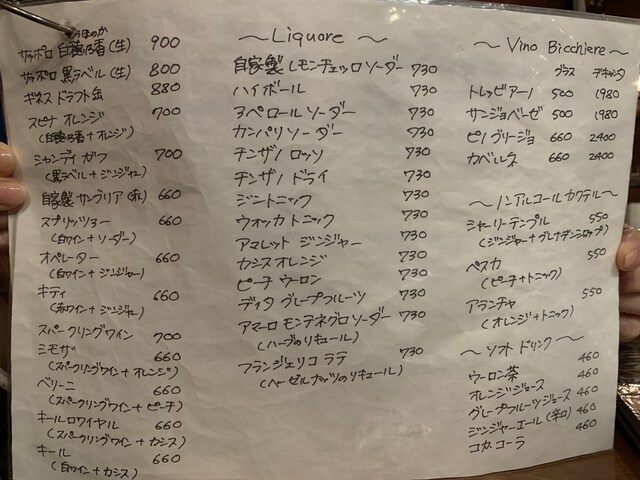 しろほのか
サッポロ 白穂乃香 (生) 900
サッポロ 黒ラベル (生) 800
ギネス ドラフト缶 880
スピナ オレンジ 700
(白穂乃香 + オレンジ)
シャンディ ガフ 700
(黒ラベル + ジンジャー)
自家製 サングリア (赤) 660
スプリッツァー 660
(白ワイン + ソーダー)
オペレーター 660
(白ワイン + ジンジャー)
キティ 660
(赤ワイン + ジンジャー)
スパークリングワイン 700
ミモザ 660
(スパークリングワイン + オレンジ)
ベリーニ 660
(スパークリングワイン + ピーチ)
キールロワイヤル 660
(スパークリングワイン + カシス)
キール 660
(白ワイン + カシス)
～ Liquore ～
自家製 レモンチェッロ ソーダー 730
ハイボール 730
アペロール ソーダー 730
カンパリ ソーダー 730
チンザノ ロッソ 730
チンザノ ドライ 730
ジントニック 730
ウォッカ トニック 730
アマレット ジンジャー 730
カシス オレンジ 730
ピーチ ウーロン 730
ディタ グレープフルーツ 730
アマーロ モンテネグロ ソーダー 730
(ハーブのリキュール)
フランジェリコ ラテ 730
(ヘーゼルナッツのリキュール)
～ Vino Bicchiere ～
グラス デキャンタ
トレッビアーノ 500 1980
サンジョベーゼ 500 1980
ピノ グリージョ 660 2400
カベルネ 660 2400
～ ノンアルコール カクテル ～
シャーリーテンプル 550
(ジンジャー + グレナデンシロップ)
ペスカ 550
(ピーチ + トニック)
アランチャ 550
(オレンジ + トニック)
～ ソフト ドリンク ～
ウーロン茶 460
オレンジジュース 460
グレープフルーツジュース 460
ジンジャーエール (辛口) 460
コカ・コーラ 460